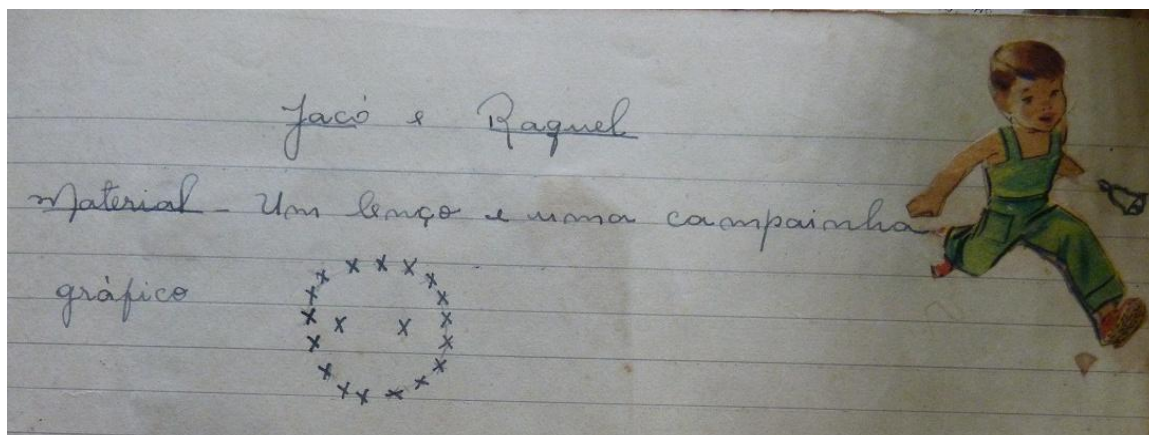 Jacó e Raquel
Material - Um lenço e uma campainha
gráfico